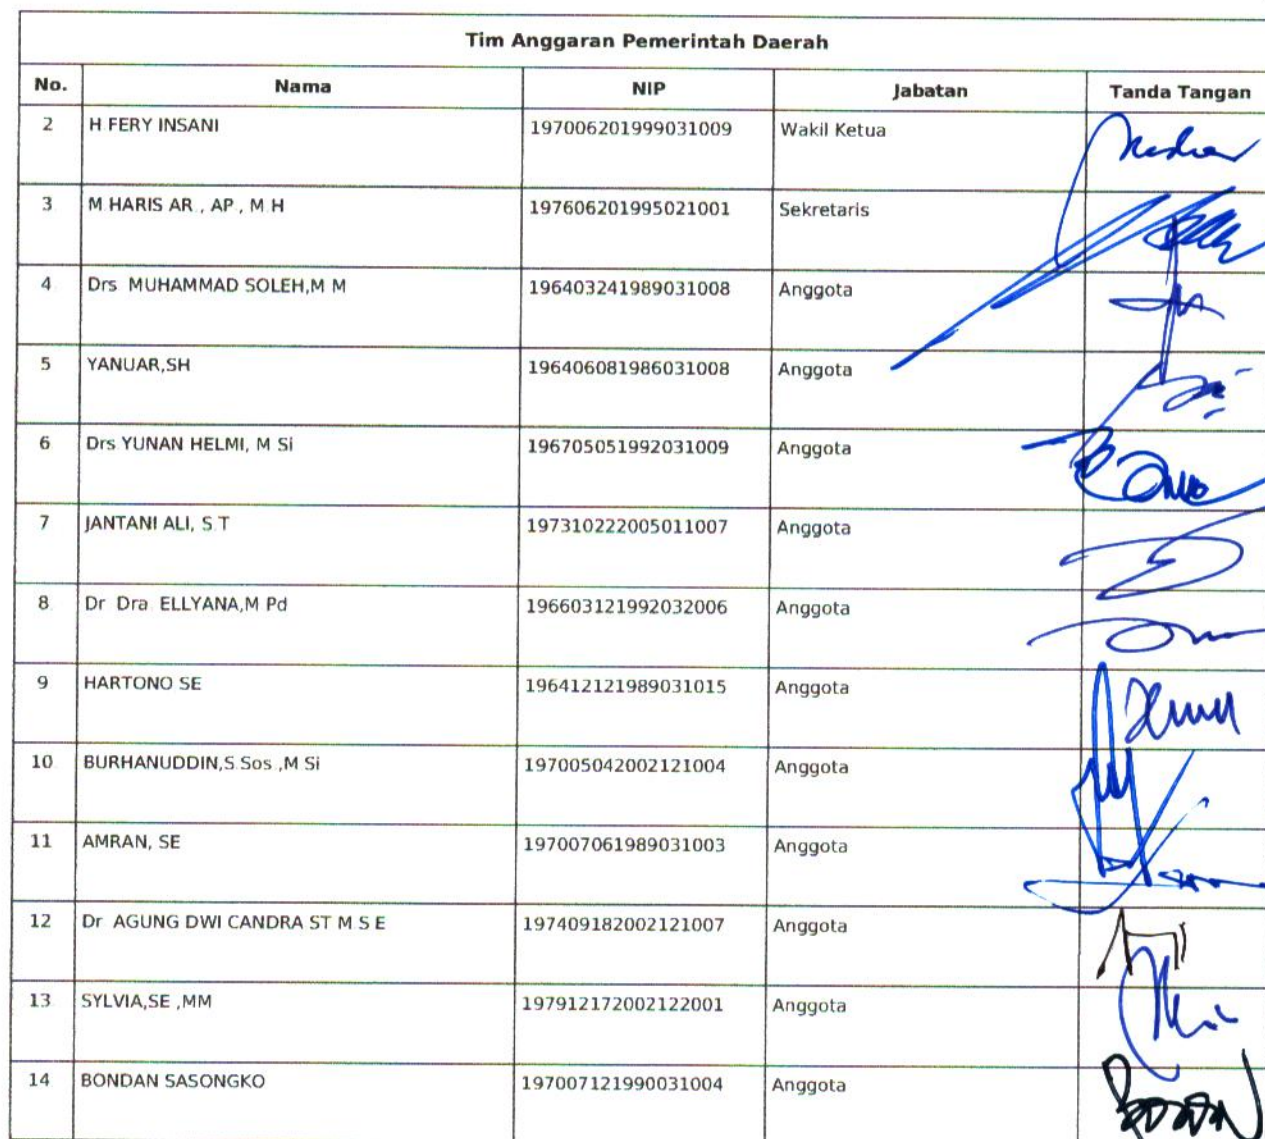 Tim Anggaran Pemerintah Daerah
No. Nama NIP Jabatan Tanda Tangan
2 H FERY INSANI 197006201999031009 Wakil Ketua
3 M HARIS AR., AP., M.H 197606201995021001 Sekretaris
4 Drs MUHAMMAD SOLEH,M M 196403241989031008 Anggota
5 YANUAR,SH 196406081986031008 Anggota
6 Drs YUNAN HELMI, M Si 196705051992031009 Anggota
7 JANTANI ALI, S.T 197310222005011007 Anggota
8 Dr Dra. ELLYANA,M Pd 196603121992032006 Anggota
9 HARTONO SE 196412121989031015 Anggota
10 BURHANUDDIN,S.Sos.,M Si 197005042002121004 Anggota
11 AMRAN, SE 197007061989031003 Anggota
12 Dr AGUNG DWI CANDRA ST M S E 197409182002121007 Anggota
13 SYLVIA,SE ,MM 197912172002122001 Anggota
14 BONDAN SASONGKO 197007121990031004 Anggota